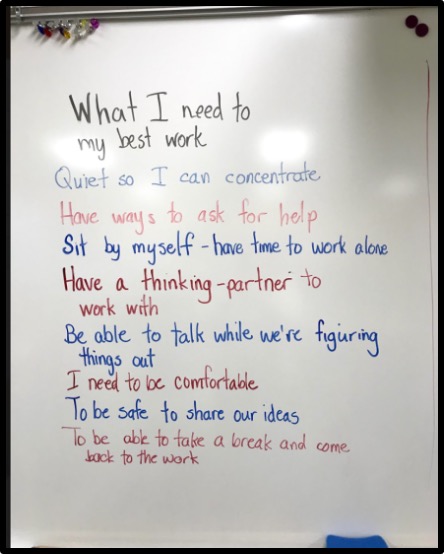 What I need to
my best work
Quiet so I can concentrate
Have ways to ask for help
Sit by myself - have time to work alone
Have a thinking-partner to
work with
Be able to talk while we're figuring
things out
I need to be comfortable
To be safe to share our ideas
To be able to take a break and come
back to the work